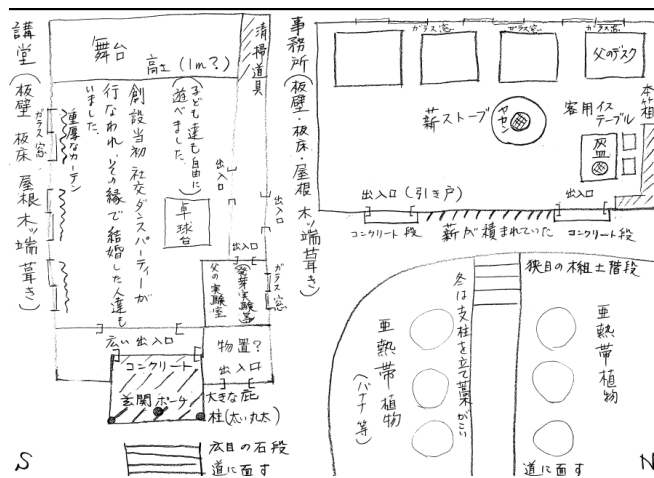 講堂(板壁 板床 屋根 木ッ端葺き)
舞台
高土(1m?)
清掃道具
(子ども達も自由に
遊べました)
創設当初 社交ダンスパーティーが
行なわれ、その縁で結婚した人達も
いました。
ガラス窓
重厚なカーテン
卓球台
出入口
出入口
出入口
父の実験室
(発芽実験等)
ガラス窓
広い出入口
物置?
出入口
コンクリート
玄関ポーチ
大きな庇
柱(太い丸太)
広目の石段
道に面す
S
事務所(板壁・板床・屋根 木ッ端葺き)
ガラス窓
ガラス窓
ガラス窓
父のデスク
薪ストーブ
ヤカン
客用イス
テーブル
本箱
灰皿
出入口(引き戸)
出入口
コンクリート段
薪が積まれていた
コンクリート段
狭目の木組土階段
冬は支柱を立て藁がこい
亜熱帯植物
(バナナ等)
亜熱帯植物
道に面す
N